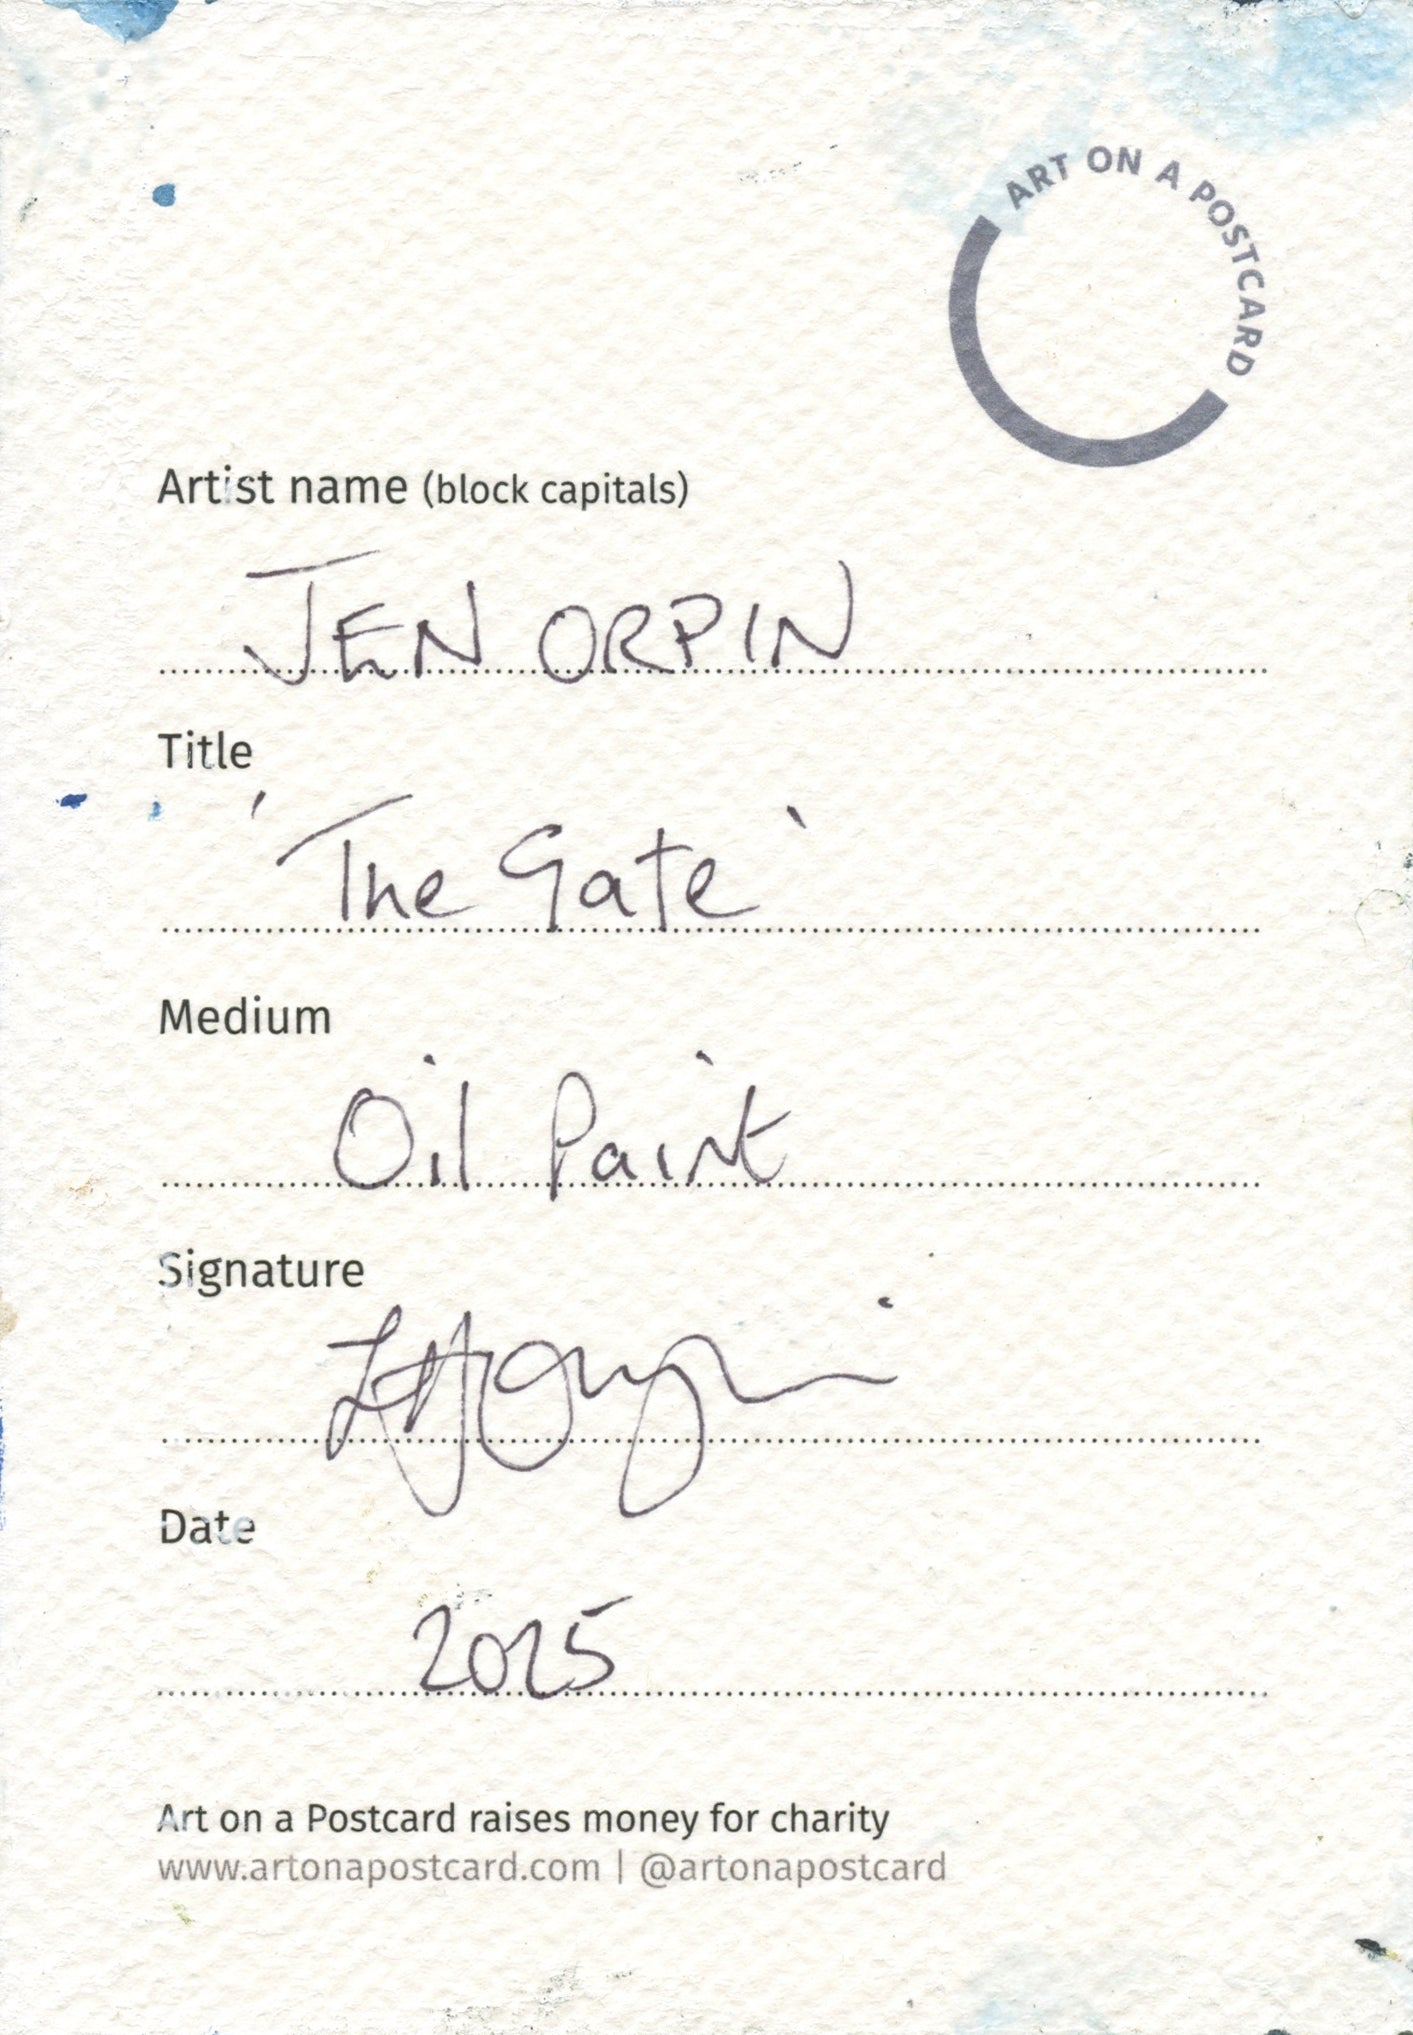 ART ON A POSTCARD
Artist name (block capitals)
JEN ORPIN
Title
'The Gate'
Medium
Oil Paint
Signature
Date
2025
Art on a Postcard raises money for charity
www.artonapostcard.com | @artonapostcard